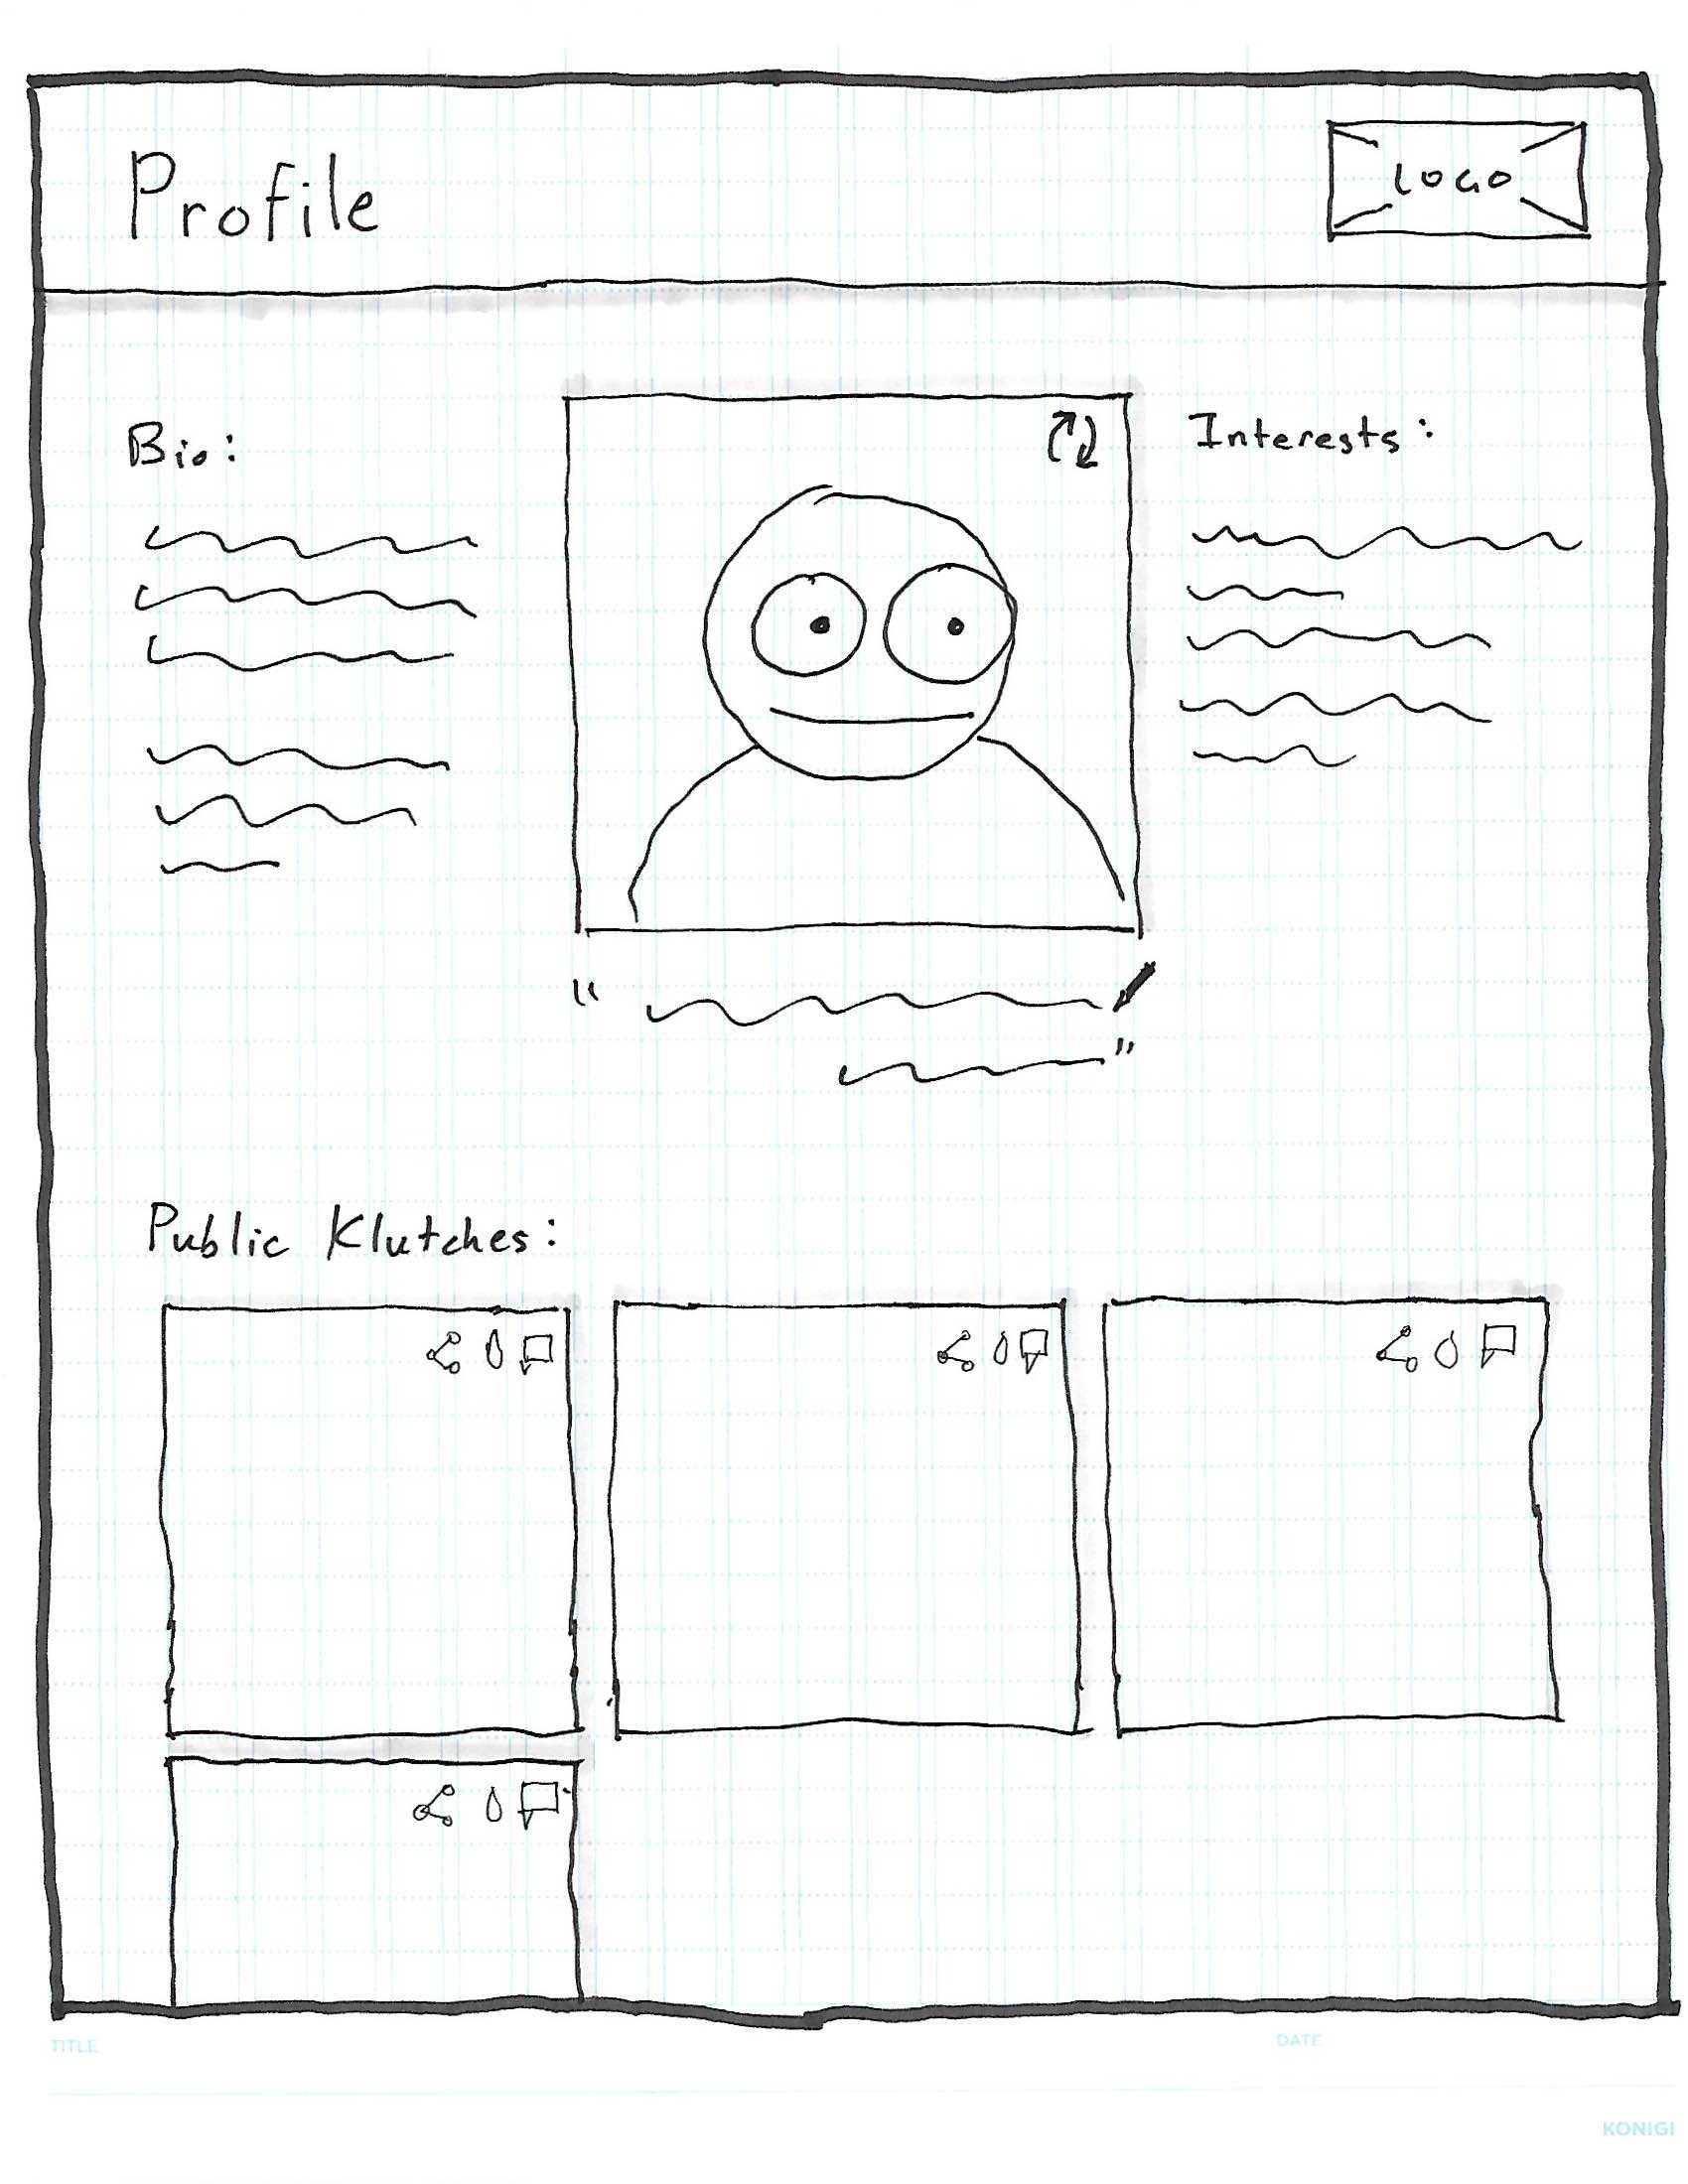 Profile
LOGO
Bio:
Interests:
"
"
Public Klutches:
TITLE
DATE
KONIGI